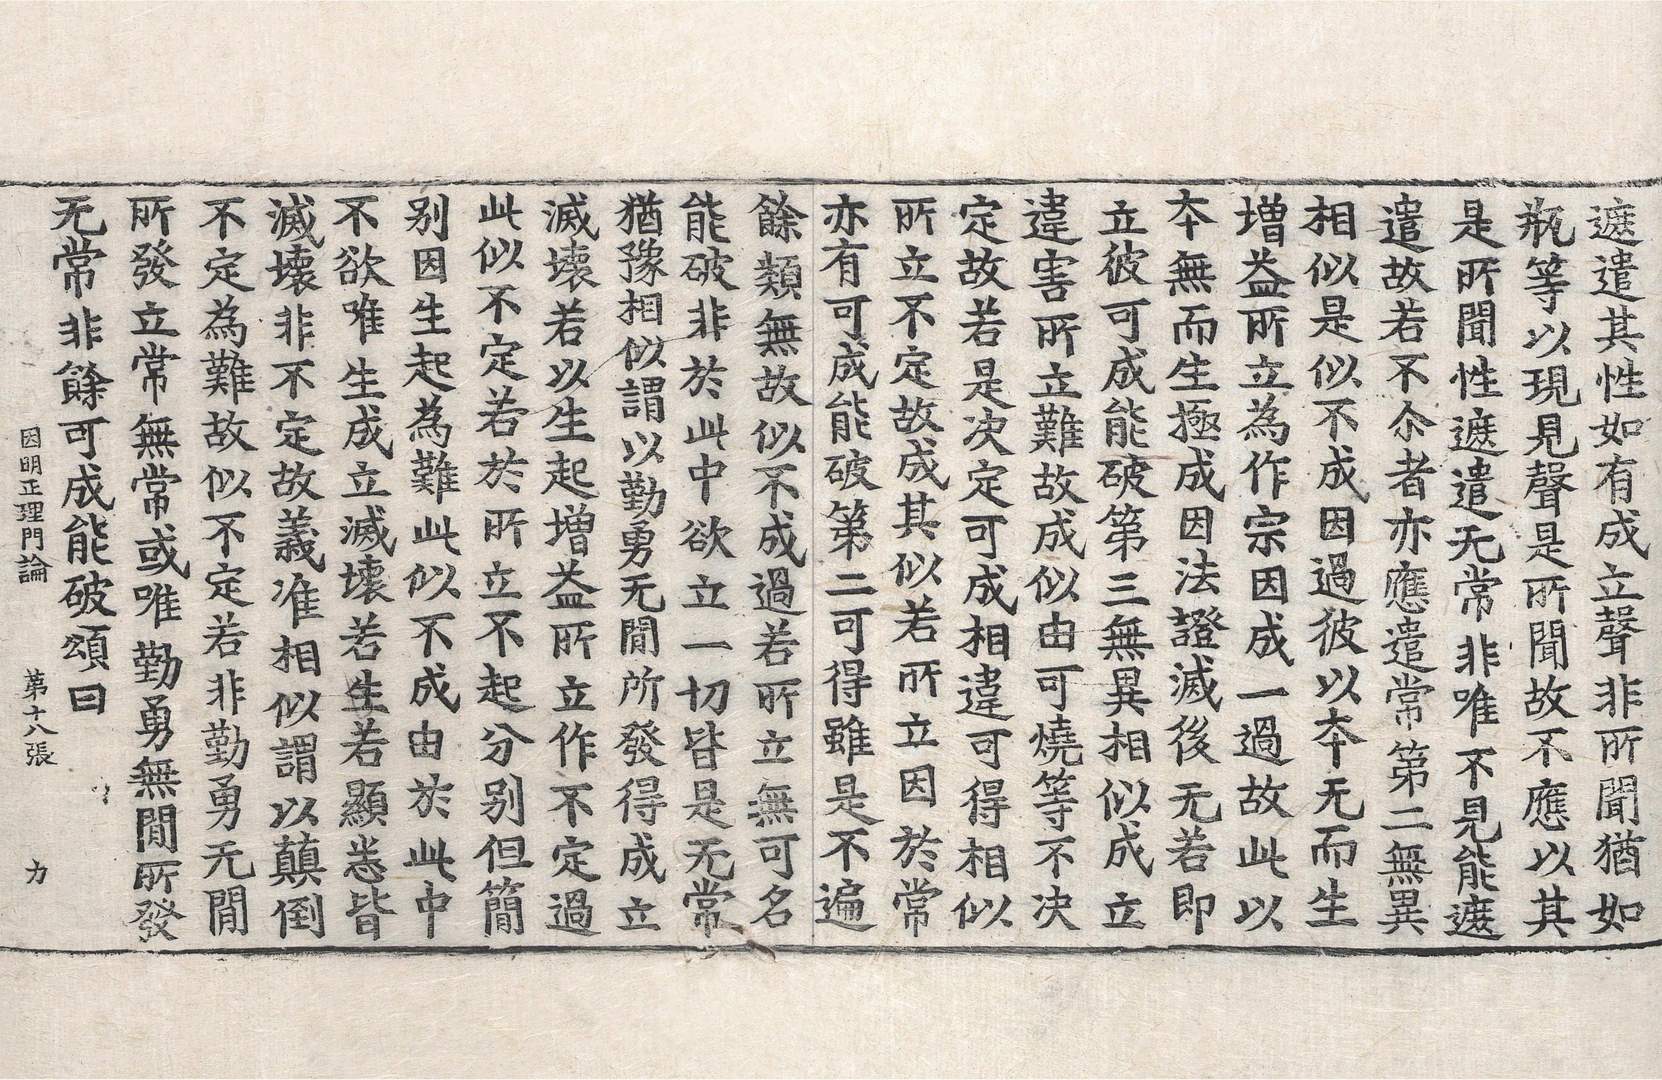 遮遣其性如有成立聲非所聞猶如
瓶等以現見聲是所聞故不應以其
是所聞性遮遣无常非唯不見能遮
遣故若不尒者亦應遣常第二無異
相似是似不成因過彼以本无而生
增益所立為作宗因成一過故此以
本無而生極成因法證滅後无若即
立彼可成能破第三無異相似成立
違害所立難故成似由可燒等不决
定故若是决定可成相違可得相似
所立不定故成其似若所立因於常
亦有可成能破第二可得雖是不遍
餘類無故似不成過若所立無可名
能破非於此中欲立一切皆是无常
猶豫相似謂以勤勇无閒所發得成立
滅壞若以生起增益所立作不定過
此似不定若於所立不起分別但簡
別因生起為難此似不成由於此中
不欲唯生成立滅壞若生若顯悉皆
滅壞非不定故義准相似謂以顛倒
不定為難故似不定若非勤勇无閒
所發立常無常或唯勤勇無閒所發
无常非餘可成能破頌曰
因明正理門論　第十八張　力